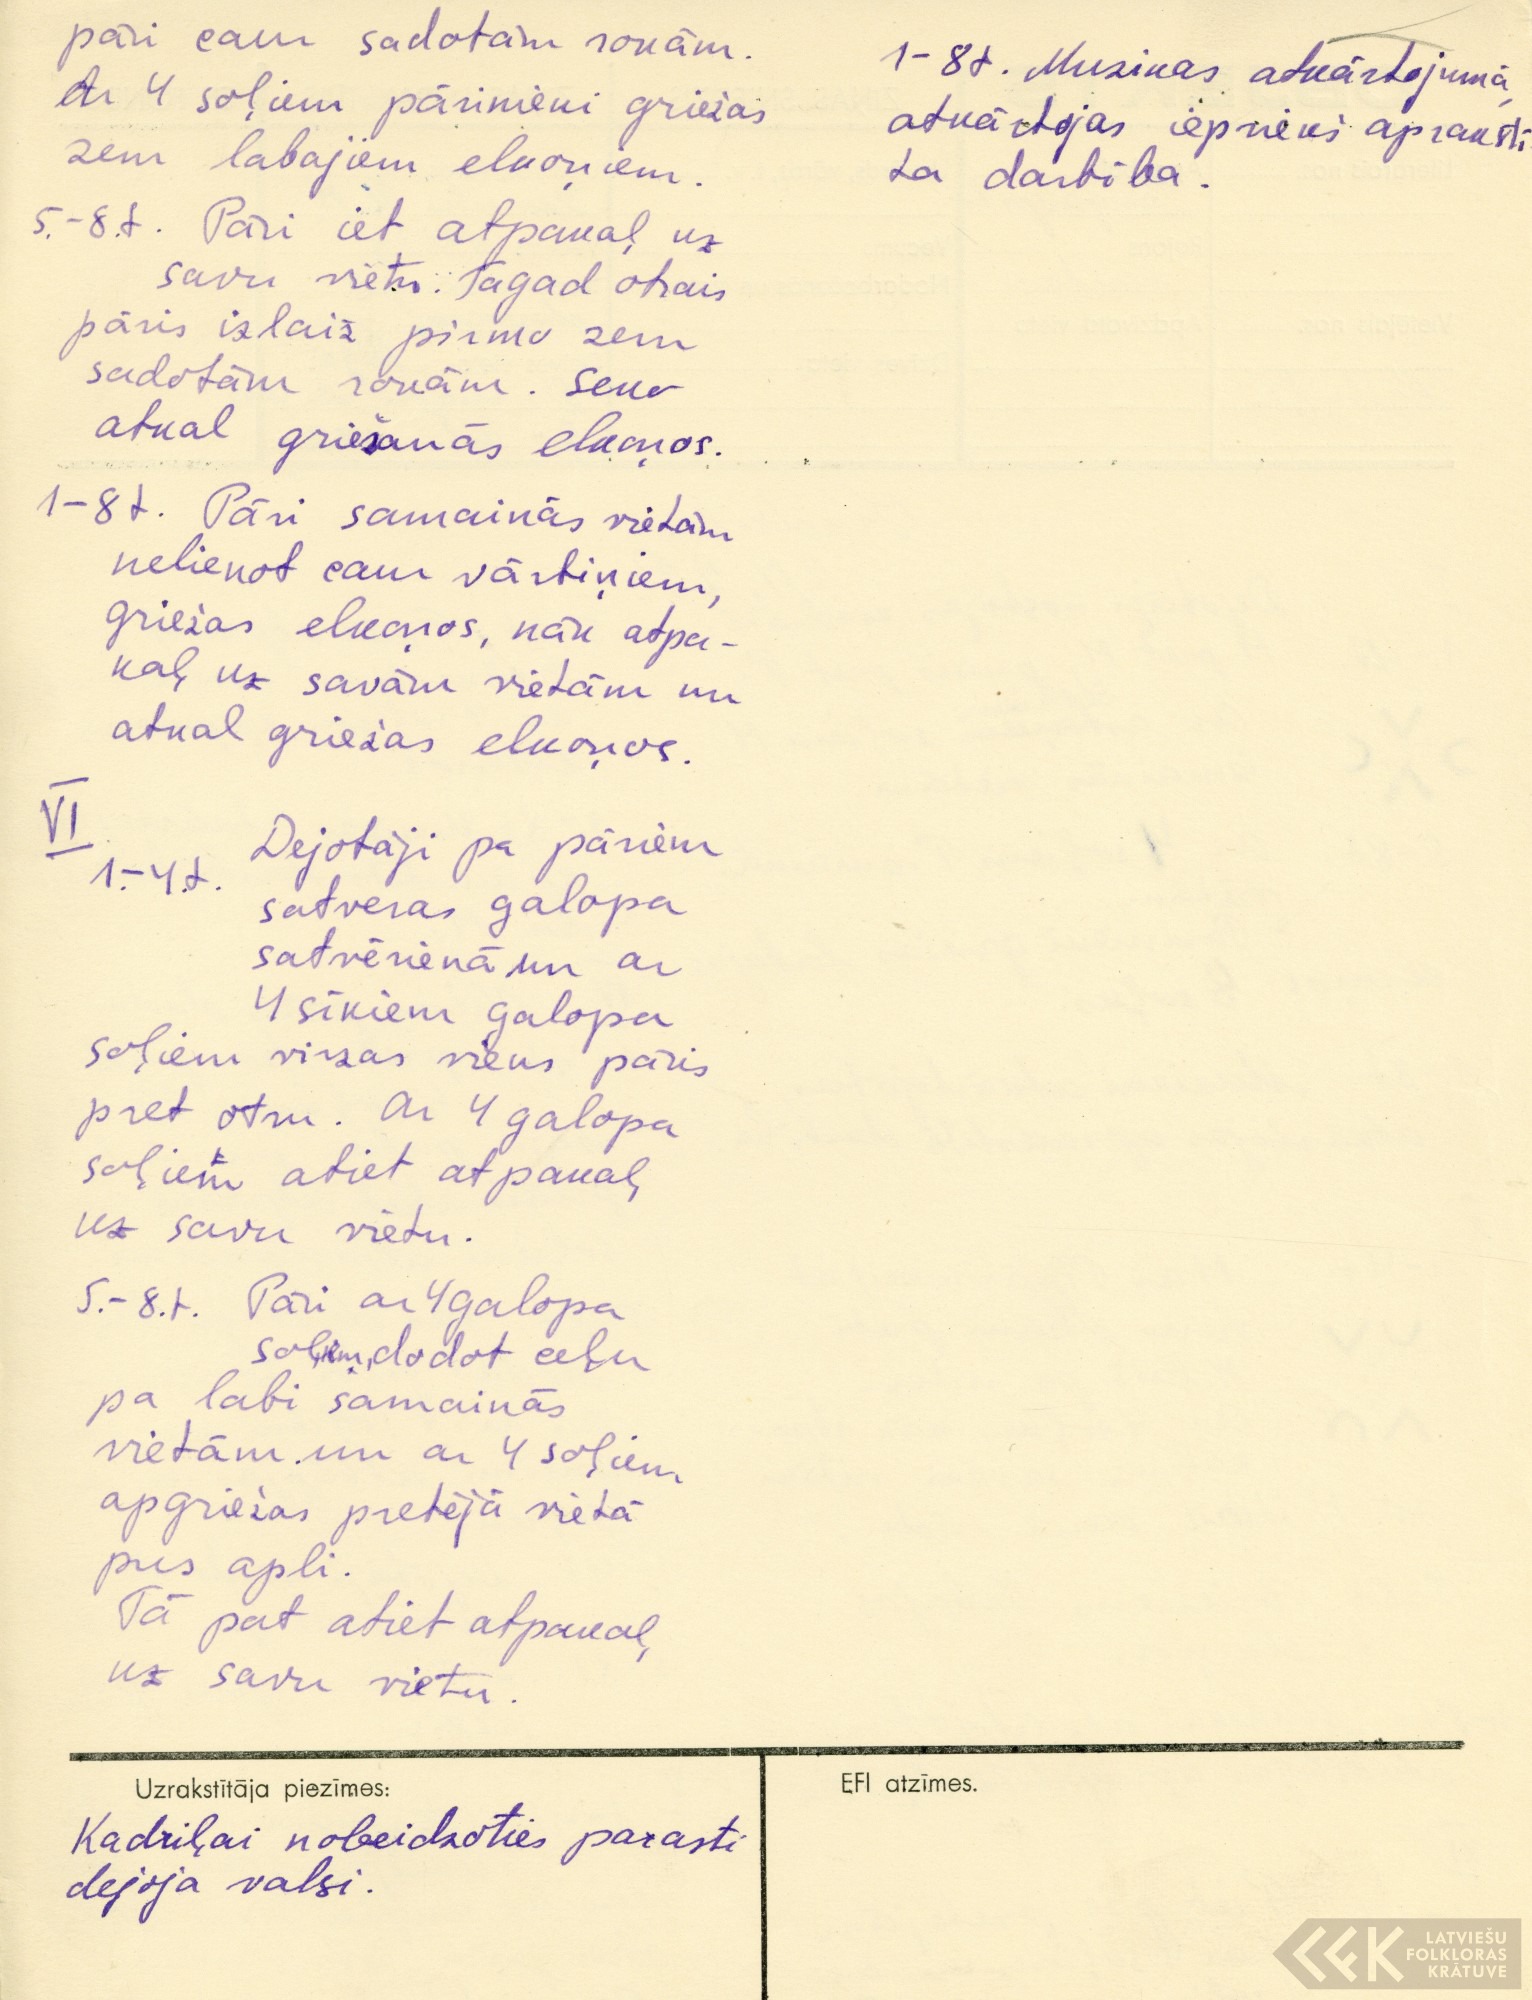 pāri caur sadotām rokām.
Ar 4 soļiem pārinieki griežas
zem labajiem elkoņiem.
5.-8.t. Pāri iet atpakaļ uz
savu vietu. Tagad otrais
pāris izlaiž pirmo zem
sadotām rokām. Seko
atkal griešanās elkoņos.
1-8t. Pāri samainās vietām
nelienot caur vārtiņiem,
griežas elkoņos, nāk atpa-
kaļ uz savām vietām un
atkal griežas elkoņos.
VI
1.-4.t. Dejotāji pa pāriem
satveras galopa
satvērienā un ar
4 sīkiem galopa
soļiem virzas viens pāris
pret otru. Ar 4 galopa
soļiem atiet atpakaļ
uz savu vietu.
5.-8.t. Pāri ar 4 galopa
soļiem, dodot ceļu
pa labi samainās
vietām un ar 4 soļiem
apgriežas pretējā vietā
pus apli.
Tā pat atiet atpakaļ
uz savu vietu.
1-8t. Muzikas atkārtojumā,
atkārtojas iepriekš aprakstī-
ta darbība.
Uzrakstītāja piezīmes:
Kadriļai nobeidzoties parasti
dejoja valsi.
EFI atzīmes.
LATVIEŠU
FOLKLORAS
KRĀTUVE